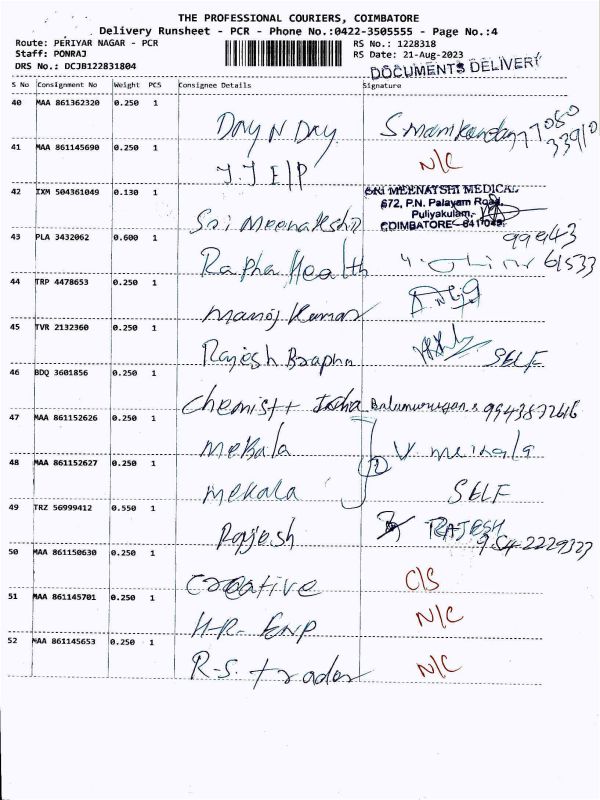 THE PROFESSIONAL COURIERS, COIMBATORE
Delivery Runsheet - PCR - Phone No.:0422-3505555 - Page No.:4
Route: PERIYAR NAGAR - PCR RS No.: 1228318
Staff: PONRAJ RS Date: 21-Aug-2023
DRS No.: DCJB122831804 DOCUMENTS DELIVERY
S No Consignment No Weight PCS Consignee Details Signature
40 MAA 861362320 0.250 1
DAY N DAY
41 MAA 861145690 0.250 1
J.J E/P N/C
42 IXM 504361049 0.130 1
SRI MEENATSHI MEDICAL
672, P.N. Palayam Road,
Puliyakulam,
COIMBATORE - 641 045.
Sri Meenakshi
43 PLA 3432062 0.600 1
99943
Rapha Health 61533
44 TRP 4478653 0.250 1
Manoj Kumar
45 TVR 2132360 0.250 1
Rajesh SELF
46 BDQ 3601856 0.250 1
Chemist India Balamurugan
47 MAA 861152626 0.250 1
Mekala
48 MAA 861152627 0.250 1
2
Mekala SELF
49 TRZ 56999412 0.550 1
Rajesh RAJESH
50 MAA 861150630 0.250 1
Creative C/S
51 MAA 861145701 0.250 1
H-R- Enp N/C
52 MAA 861145653 0.250 1
R-S. trader N/C